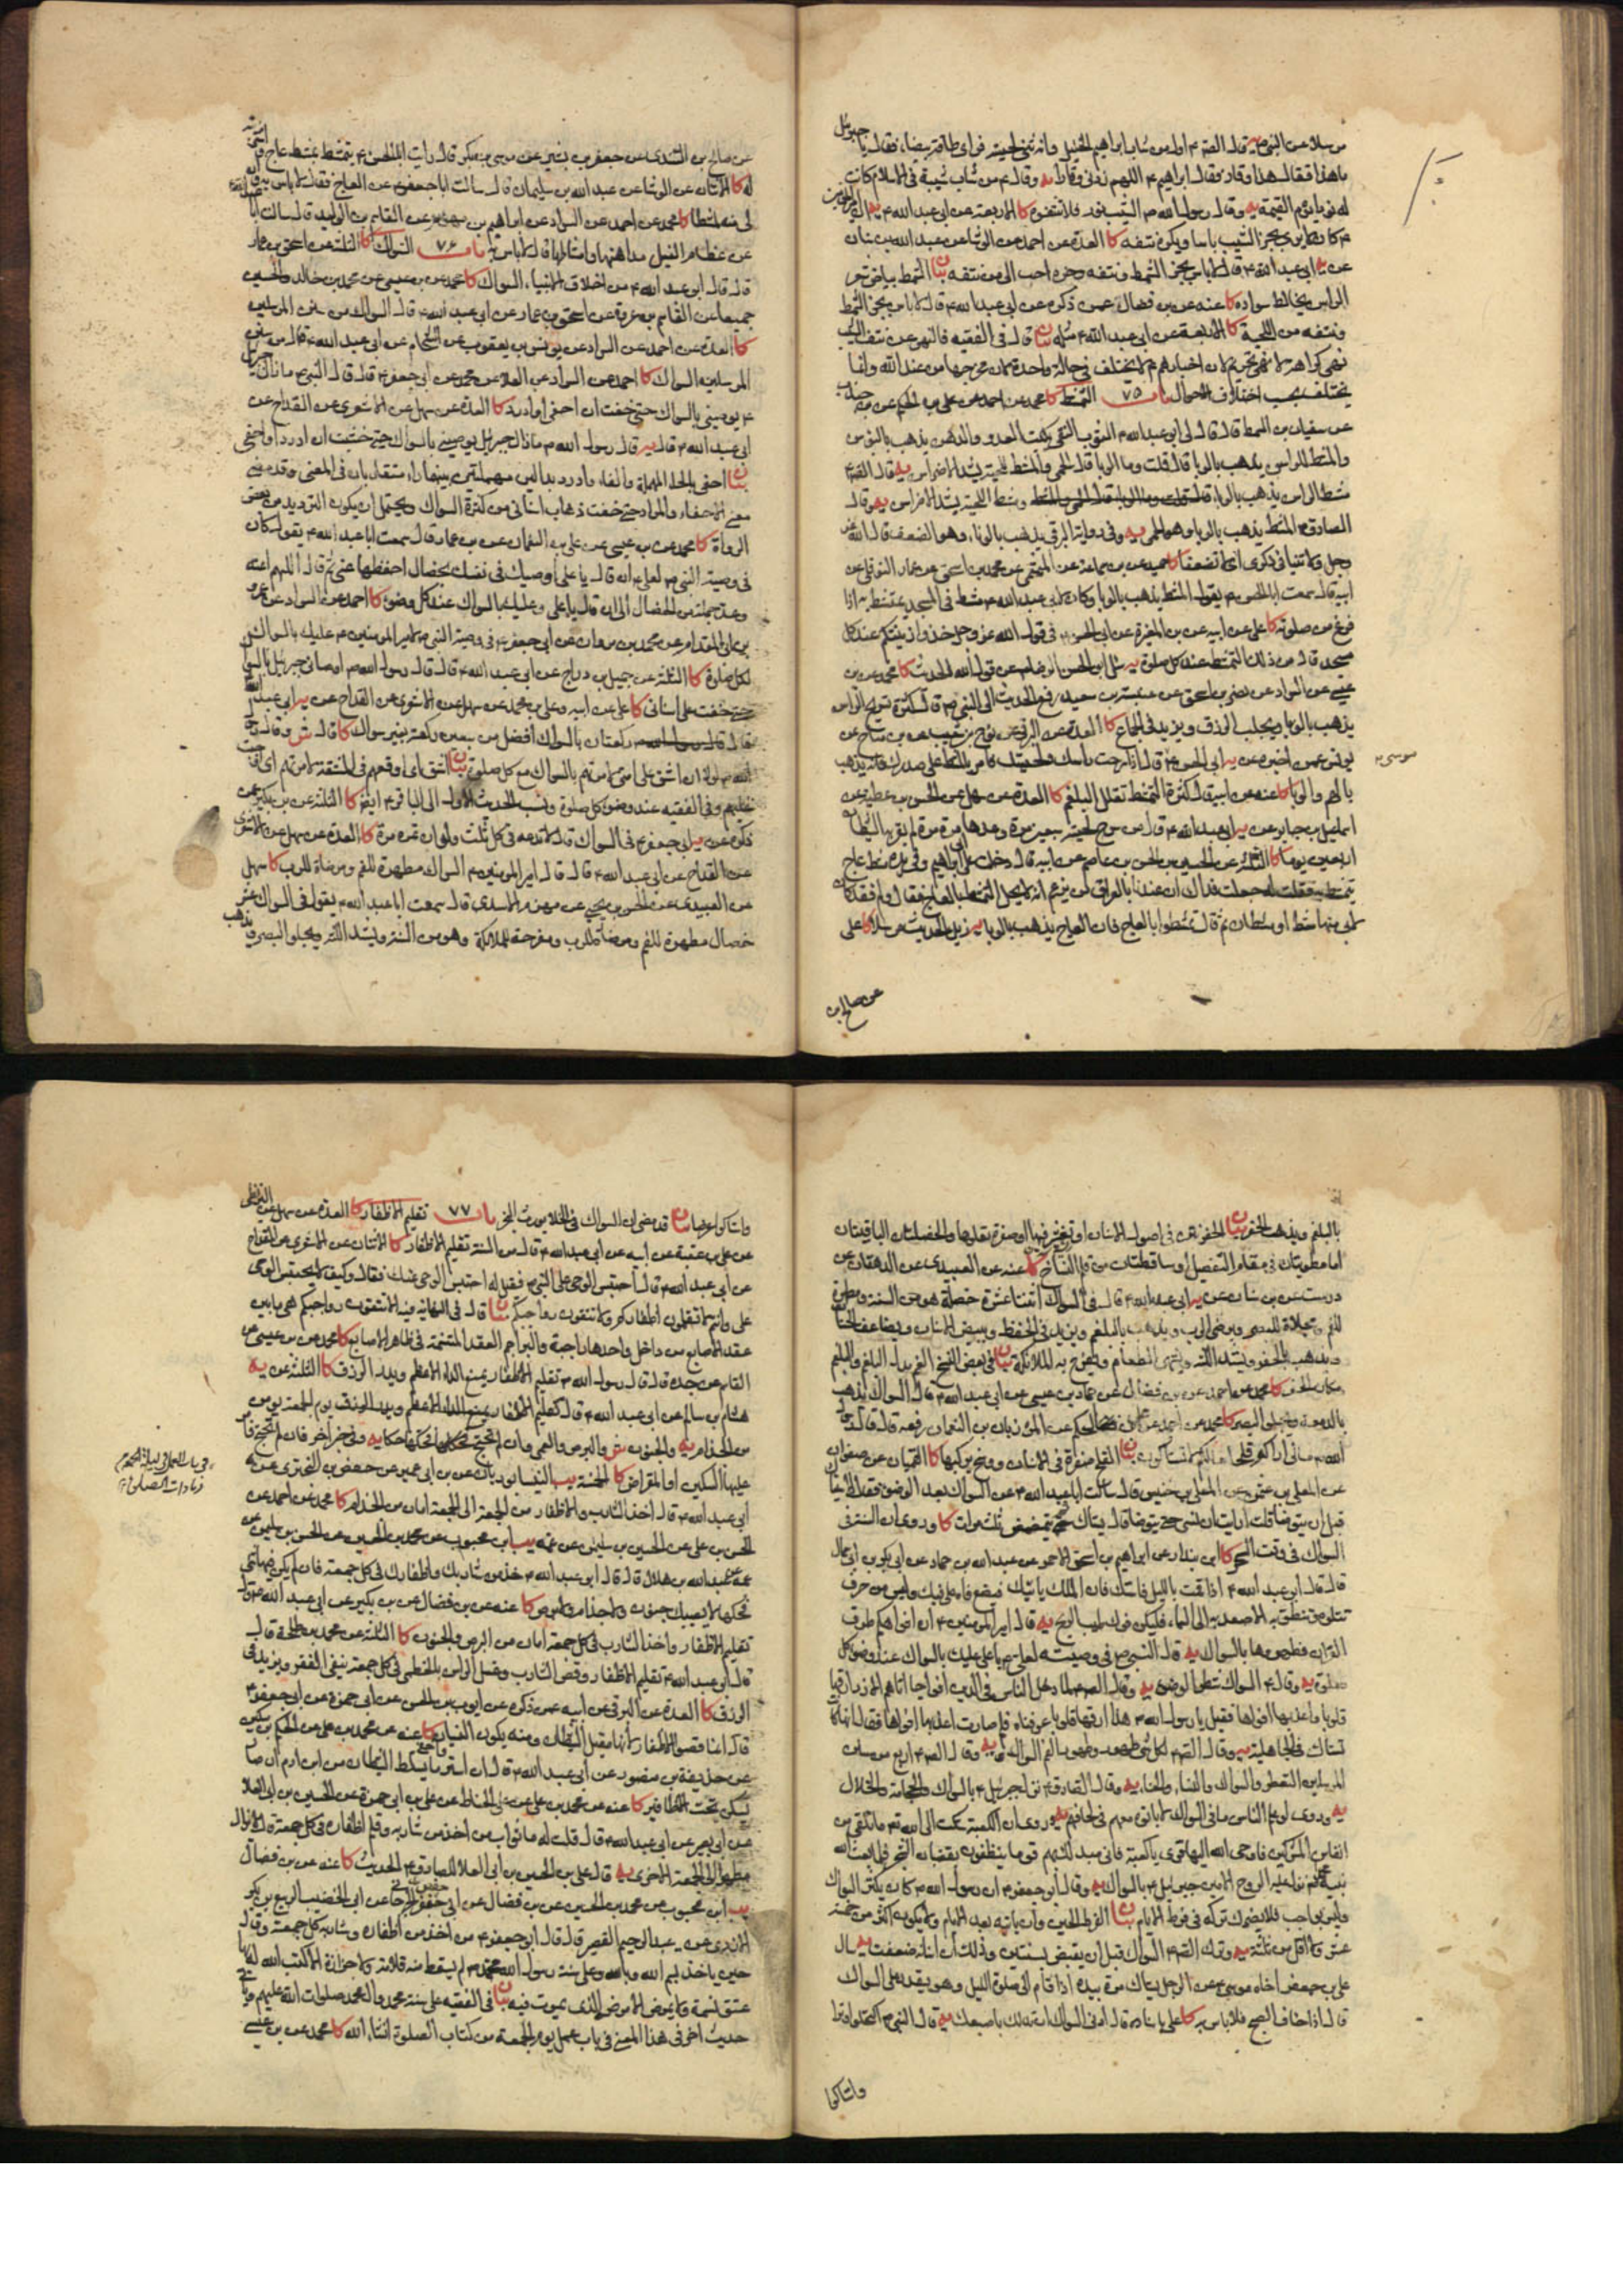 مرسلا عن النبي ص يه قال الصادق ع اول من شاب ابراهيم الخليل وانه ثنى لحيته فراى طاقة بيضاء فقال يا جبرئيل
ما هذا فقال هذا وقار فقال ابراهيم ع اللهم زدني وقارا يه وقال ع من شاب شيبة في الاسلام كانت
له نورا يوم القيمة يه وقال رسول الله ص الشيب نور فلا تنتفوه كا الاربعة عن ابي عبد الله ع
ع كان لا يرى بجز الشيب باسا ويكره نتفه كا العدة عن احمد عن الوشا عن عبد الله بن سنان
عن ابي عبد الله ع قال لا باس بجز الشمط ونتفه وجزه احب الى من نتفه بيان الشمط بياض شعر
الراس يخالط سواده كا عنه عن بن فضال عمن ذكره عن ابي عبد الله ع قال لا باس بجز الشمط
ونتفه من اللحية كا الاربعة عن ابي عبد الله ع مثله بيان قال في الفقيه فالنهي عن نتف الشيب
نهي كراهية لا نهي تحريم لان اخبارهم ع لا تختلف في حالة واحدة لان مخرجها من عند الله وانما
يختلف بحسب اختلاف الاحوال باب ٧٥ التمشط كا محمد عن احمد عن علي بن الحكم عن
عن سفيان بن السمط قال قال لي ابو عبد الله ع الثوب النقي يكبت العدو والدهن يذهب بالبؤس
والمشط للراس يذهب بالوبا قال قلت وما الوبا قال الحمى والمشط للحية يشد الاضراس يه قال الصادق ع
مشط الراس يذهب بالوباء ومشط اللحية يشد الاضراس يه وقال
الصادق ع المشط يذهب بالوبا وهو الحمى يه وفي رواية البرقي يذهب بالونا وهو الضعف قال الله عز
وجل ولا تنيا في ذكري اي لا تضعفا كا حميد عن بن سماعة عن الميثمي عن محمد بن اسحق عن عمار النوفلي عن
ابيه قال سمعت ابا الحسن ع يقول المشط يذهب بالوبا وكان لابي عبد الله ع مشط في المسجد يتمشط به اذا
فرغ من صلوته كا علي عن ابيه عن بن المغيرة عن ابي الحسن ع في قول الله عز وجل خذوا زينتكم عند كل
مسجد قال من ذلك التمشط عند كل صلوة يه سئل ابو الحسن الرضا ع عن قول الله الحديث كا محمد عن بن
عيسى عن السراد عن نضر بن اسحق عن عنبسة بن سعيد رفع الحديث الى النبي ص قال كثرة تسريح الراس
يذهب بالوبا ويجلب الرزق ويزيد في الجماع كا العدة عن البرقي عن نوح بن شعيب عن بن مياح عن
يونس عمن اخبره عن ابي الحسن ع قال اذا سرحت راسك ولحيتك فامر المشط على صدرك فانه يذهب
موسى ع
بالهم والوبا كا عنه عن ابيه قال كثرة التمشط تقلل البلغم كا العدة عن سهل عن الحسن بن عطية عن
اسمعيل بن جابر عن ابي عبد الله ع قال من سرح لحيته سبعين مرة وعدها مرة مرة لم يقربه الشيطان
اربعين يوما كا الثلثة عن الحسين بن الحسن بن عاصم عن ابيه قال دخلت على ابي ابراهيم وفي يده مشط عاج
يتمشط به فقلت له جعلت فداك ان عندنا بالعراق من يزعم انه لا يحل التمشط بالعاج فقال ولم فقد كان
لابي منها مشط او مشطان ثم قال تمشطوا بالعاج فان العاج يذهب بالوبا يه ذيل الحديث مرسلا كا علي
عن صالح بن
عن صالح بن السندي عن جعفر بن بشير عن موسى بن بكر قال رايت ابا الحسن ع يتمشط بمشط عاج
كا الاثنان عن الوشا عن عبد الله بن سليمان قال سالت ابا جعفر ع عن العاج فقال لا باس به
لي منه لمشطا كا محمد عن احمد عن السراد عن ابراهيم بن مهزم عن القاسم بن الوليد قال سالت ابا
عن عظام الفيل مداهنها وامشاطها قال لا باس به باب ٧٦ السواك كا الثلثة عن اسحق بن عمار
قال قال ابو عبد الله ع من اخلاق الانبياء السواك كا محمد عن بن عيسى عن محمد بن خالد والحسين
جميعا عن القاسم بن عروة عن اسحق بن عمار عن ابي عبد الله ع قال السواك من سنن المرسلين
كا العدة عن احمد عن السراد عن يونس بن يعقوب عن الشحام عن ابي عبد الله ع قال من سنن
المرسلين السواك كا احمد عن السراد عن العلا عن محمد عن ابي جعفر ع قال قال النبي ص ما زال جبرئيل
ع يوصيني بالسواك حتى خفت ان احفى او ادرد كا العدة عن سهل عن الاشعري عن القداح عن
ابي عبد الله ع قال يه قال رسول الله ص ما زال جبرئيل يوصيني بالسواك حتى خشيت ان ادرد او احفى
بيان احفى بالحاء المهملة والفاء وادرد بدالين مهملتين بينهما راء متقاربان في المعنى وقد مضى
معنى الاحفاء والمراد حتى خفت ذهاب اسناني من كثرة السواك ويحتمل ان يكون الترديد من بعض
الرواة كا محمد عن بن عيسى عن علي بن النعمان عن بن عمار قال سمعت ابا عبد الله ع يقول كان
في وصية النبي ص لعلي ع انه قال يا علي اوصيك في نفسك بخصال احفظها عني ثم قال اللهم اعنه
وعد جملة من الخصال الى ان قال يا علي وعليك بالسواك عند كل وضوء كا احمد عن السراد عن عمرو
بن ابي المقدام عن محمد بن مروان عن ابي جعفر ع في وصية النبي ص لامير المومنين ع عليك بالسواك
لكل صلوة كا الثلثة عن جميل بن دراج عن ابي عبد الله ع قال قال رسول الله ص اوصاني جبرئيل بالسواك
حتى خفت على اسناني كا علي عن ابيه وعلي بن محمد عن سهل عن الاشعري عن القداح عن ابي عبد الله
قال ركعتان بالسواك افضل من سبعين ركعة بغير سواك كا قال ش وقال
الله ص لولا ان اشق على امتي لامرتهم بالسواك مع كل صلوة بيان اشق اي اوقعهم في المشقة
عليهم وفي الفقيه عند وضوء كل صلوة ونسب الحديث الاول الى الباقر ع ايضا كا الثلثة عن بن بكير عمن
ذكره عن ابي جعفر ع في السواك قال لا تدعه في كل ثلث ولو ان تمره مرة كا العدة عن سهل عن الاشعري
عن القداح عن ابي عبد الله ع قال قال امير المومنين ع السواك مطهرة للفم ومرضاة للرب كا سهل
عن العبيدي عن الحسن بن يحيى عن مهزم الاسدي قال سمعت ابا عبد الله ع يقول في السواك عشر
خصال مطهرة للفم ومرضاة للرب ومفرحة للملائكة وهو من السنة ويشد اللثة ويجلو البصر ويذهب
بالبلغم ويذهب بالحفر بيان الحفر نقر في اصول الاسنان او تقشير فيها او صفرة تعلوها والخصلتان الباقيتان
اما مطويتان في مقام التفصيل او ساقطتان من قلم النساخ كا عنه عن العبيدي عن الدهقان عن
درست عن بن سنان عن ابي عبد الله ع قال في السواك اثنتا عشرة خصلة هو من السنة ومطهرة
للفم ومجلاة للبصر ويرضى الرب ويذهب بالبلغم ويزيد في الحفظ ويبيض الاسنان ويضاعف الحسنات
ويذهب بالحفر ويشد اللثة ويشهى الطعام ويفرح به الملائكة بيان في بعض النسخ الغم بدل البلغم والبلغم
مكان الحفر كا محمد عن احمد عن بن فضال عن حماد بن عيسى عن ابي عبد الله ع قال السواك يذهب
بالدمعة ويجلو البصر كا محمد عن احمد عن علي بن الحكم عن المرزبان بن النعمان رفعه قال قال رسول
الله ص ما لي اراكم قلحا ما لكم لا تستاكون بيان القلح صفرة في الاسنان ووسخ يركبها كا القميان عن صفوان
عن المعلى بن عثمان عن المعلى بن خنيس قال سالت ابا عبد الله ع عن السواك بعد الوضوء فقال الاستياك
قبل ان يتوضا قلت ارايت ان نسي حتى يتوضا قال يستاك ثم يتمضمض ثلث مرات كا وروي ان السنة في
السواك في وقت السحر كا ابن بندار عن ابراهيم بن اسحق الاحمر عن عبد الله بن حماد عن ابي بكر بن ابي سمال
قال قال ابو عبد الله ع اذا قمت بالليل فاستك فان الملك ياتيك فيضع فاه على فيك وليس من حرف
تتلوه وتنطق به الا صعد به الى السماء فليكن فوك طيب الريح يه قال امير المومنين ع ان افواهكم طرق
القران فطهروها بالسواك يه قال النبي ص في وصيته لعلي ع يا علي عليك بالسواك عند وضوء كل
صلوة يه وقال ع السواك شطر الوضوء يه وقال الصادق ع لما دخل الناس في الدين افواجا اتاهم الازد ارقها
قلوبا واعذبها افواها فقيل يا رسول الله ص هذا ارقها قلوبا عرفناه فلم صارت اعذبها افواها فقال انها كانت
تستاك في الجاهلية يه وقال الصادق ع لكل شيء طهور وطهور الفم السواك يه وقال الصادق ع اربع من سنن
المرسلين التعطر والسواك والنساء والحناء يه وقال الصادق ع نزل جبرئيل ع بالسواك والحجامة والخلال
يه وروي لو علم الناس ما في السواك لاباتوه معهم في لحافهم يه وروي ان الكعبة شكت الى الله تع ما تلقى من
انفاس المشركين فاوحى الله اليها قري يا كعبة فاني مبدلك بهم قوما يتنظفون بقضبان الشجر فلما بعث الله
نبيه محمدا نزل عليه الروح الامين جبرئيل ع بالسواك يه وقال ابو جعفر ع ان رسول الله ص كان يكثر السواك
وليس بواجب فلا يضرك تركه في فرط الايام بيان الفرط الحين وان ياتيه بعد الايام ولا يكون اكثر من خمسة
عشر ولا اقل من ثلثة يه وترك الصادق ع السواك قبل ان يقبض بسنتين وذلك ان اسنانه ضعفت يه سال
علي بن جعفر اخاه موسى ع عن الرجل يستاك مرة بيده اذا قام الى صلوة الليل وهو يقدر على السواك
قال اذا خاف الصبح فلا باس به كا علي باسناده قال ادنى السواك ان تدلك باصبعك يه قال النبي ص اكتحلوا وترا
واستاكوا
واستاكوا عرضا بيان قد مضى ان السواك في الخلا يورث البخر باب ٧٧ تقليم الاظفار كا العدة عن سهل عن
عن علي بن عقبة عن ابيه عن ابي عبد الله ع قال من السنة تقليم الاظفار كا الاثنان عن الاشعري عن القداح
عن ابي عبد الله ع قال احتبس الوحي على النبي ص فقيل له احتبس الوحي عنك فقال وكيف لا يحتبس الوحي
علي وانتم لا تقلمون اظفاركم ولا تنقون رواجبكم بيان قال في النهاية فيه الا تنقون رواجبكم هي ما بين
عقد الاصابع من داخل واحدها راجبة والبراجم العقد المتشنجة في ظاهر الاصابع كا محمد عن بن عيسى عن
القاسم عن جده قال قال رسول الله ص تقليم الاظفار يمنع الداء الاعظم ويدر الرزق كا الثلثة عن يه
هشام بن سالم عن ابي عبد الله ع قال تقليم الاظفار يوم الجمعة يومن
من الجذام يه والجنون ش والبرص والعمى وان لم تحتج فحكها حكا يه وفي خبر اخر فان لم تحتج فامر
عليها السكين او المقراض كا الخمسة يب عن بن ابي عمير عن حفص بن البختري عن
ابي عبد الله ع قال اخذ الشارب والاظفار من الجمعة الى الجمعة امان من الجذام كا محمد عن احمد عن
في باب العمل في ليلة الجمعة
زيادات الصلوة
الحسن بن علي عن الحسين بن
عمه عبد الله بن هلال قال قال ابو عبد الله ع خذ من شاربك واظفارك في كل جمعة فان لم يكن فيها شيء
فحكها لا يصيبك جنون ولا جذام ولا برص كا عنه عن بن فضال عن بن بكير عن ابي عبد الله ع قال
تقليم الاظفار واخذ الشارب في كل جمعة امان من البرص والجنون كا الثلثة عن محمد بن طلحة قال
قال ابو عبد الله ع تقليم الاظفار وقص الشارب وغسل الراس بالخطمي في كل جمعة ينفي الفقر ويزيد في
الرزق كا العدة عن البرقي عن ابيه عمن ذكره عن ايوب بن الحسن عن ابي حمزة عن ابي جعفر ع
قال انما قصوا الاظفار لانها مقيل الشيطان ومنه يكون النسيان كا عنه عن محمد بن علي عن الحكم بن مسكين
عن حذيفة بن منصور عن ابي عبد الله ع قال ان استر واخفى ما يسلط الشيطان من ابن ادم ان صار
يسكن تحت الاظافير كا عنه عن محمد بن علي عن علي الحناط عن علي بن ابي حمزة عن الحسين بن ابي العلا
عن ابي بصير عن ابي عبد الله ع قال قلت له ما ثواب من اخذ من شاربه وقلم اظفاره في كل جمعة قال لا يزال
مطهرا الى الجمعة الاخرى يه قال علي بن الحسين بن ابي العلا للصادق ع الحديث كا عنه عن بن فضال
يب ابن محبوب عن محمد بن الحسين عن بن فضال عن ابي حفص الجرجاني عن ابي الخضيب الربيع بن بكر
الازدي عن عبد الرحيم القصير قال قال ابو جعفر ع من اخذ من اظفاره وشاربه كل جمعة وقال
حين ياخذ بسم الله وبالله وعلى سنة رسول الله محمد ص لم يسقط منه قلامة ولا جزازة الا كتب الله له بها
عتق نسمة ولا يمرض الا مرضه الذي يموت فيه بيان في الفقيه على سنة محمد وال محمد صلوات الله عليهم وياتي
حديث اخر في هذا المعنى في باب عمل يوم الجمعة من كتاب الصلوة انشاء الله كا محمد عن بن عيسى